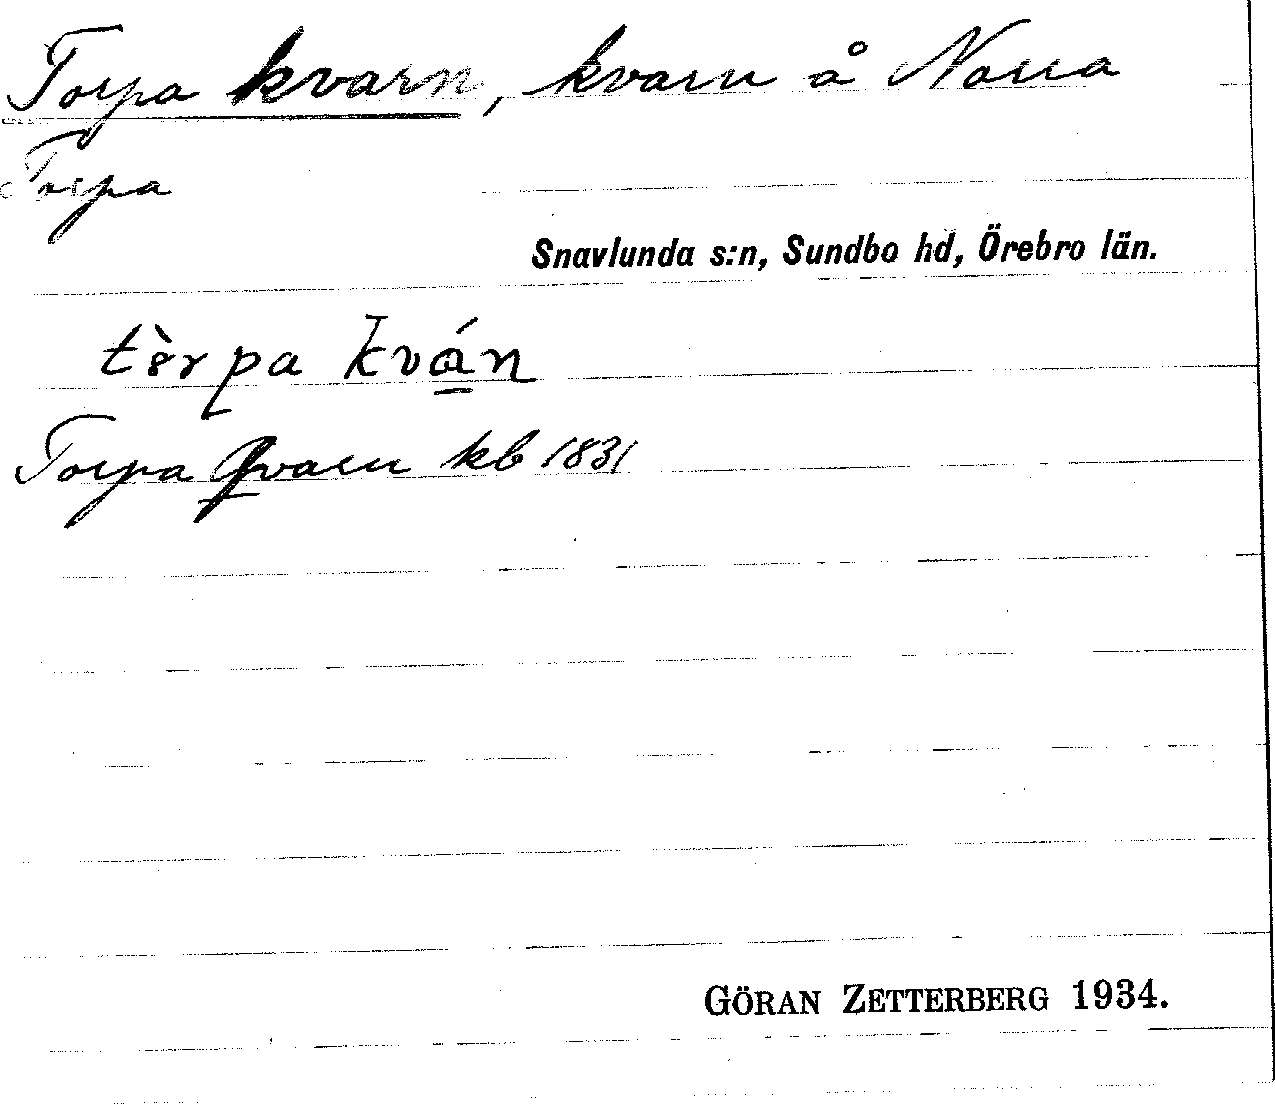 Torpa kvarn, kvarn å Norra
Torpa
Snavlunda s:n, Sundbo hd, Örebro län.
kván
Torpa Qvarn kb 1831
GÖRAN ZETTERBERG 1934.